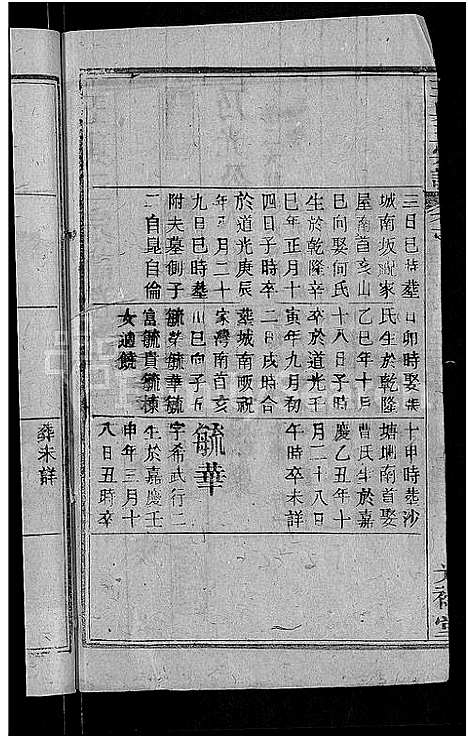 三日巳時葬
城南坂祝家
屋南首亥山
巳向娶何氏
生於乾隆辛
巳年正月十
四日子時卒
於道光庚辰
年五月二十
九日巳時葬
附夫墓側子
二自昆自倫
日卯時娶朱
氏生於乾隆
乙巳年十月
十八日子時
卒於道光壬
寅年九月初
二日戌時合
葬城南坂祝
家灣南首亥
山巳向子五
毓榮毓華毓
富毓貴毓棟
女適饒
十申時葬沙
塘墈南首娶
曹氏生於嘉
慶乙丑年十
月二十八日
午時卒未詳
毓華
字希武行二
生於嘉慶壬
申年三月十
八日丑時卒
葬未詳